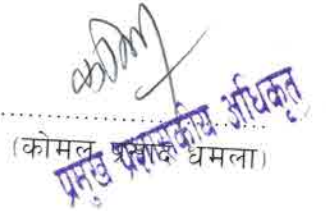 कोमल
....................................
(कोमल प्रसाद धमला)
प्रमुख प्रशासकीय अधिकृत